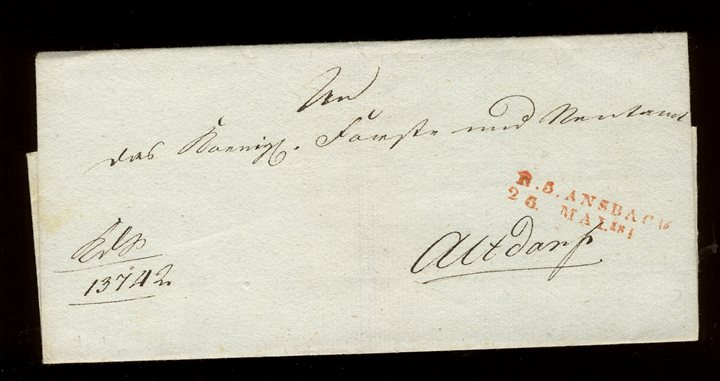 An
das Koenigl. Forst- und Rentamt
R.3.ANSBACH
25. MAI.181
Altdorf
KdK
13742